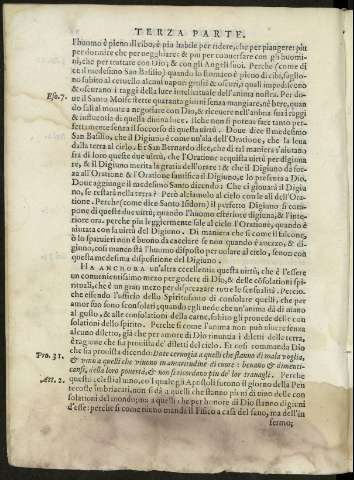 TERZA PARTE.
l'huomo è pieno di cibo, è più habile per ridere, che per piangere: più
per dormire che per vegghiare: & più per conuersare con gli huomi-
ni, che per trattare con Dio; & con gli Angeli suoi. Perche (come di
ce il medesimo San Basilio) quando lo stomaco è pieno di cibi, saglio-
no subito al ceruello alcuni vapori grossi & oscuri, i quali impediscono
& oscurano i raggi della luce intellettuale dell'anima nostra. Per do-
Eso. 7.
ue il Santo Moise stette quaranta giorni senza mangiare, nè bere, quan
do salì al monte a negotiare con Dio, & riceuere nell'anima sua i raggi
& industria di quella diuina luce. Ilche non si poteua fare tanto per-
fettamente senza il soccorso di questa virtù. Doue dice il medesimo
San Basilio, che il Digiuno è come un'ala dell'Oratione, che la leua
dalla terra al cielo. Et San Bernardo dice, che di tal maniera s'aiutano
fra di loro queste due virtù, che l'Oratione acquista virtù per digiuna
re, & il Digiuno merita la gratia dell'orare: & che il Digiuno dà for-
za all'Oratione & l'Oratione santifica il Digiuno, e lo presenta a Dio.
Doue aggiunge il medesimo Santo dicendo: Che ci giouarà il Digiu
no, se restarà nella terra? Però alziamolo al cielo con le ali dell'Ora-
tione. Perche (come dice Santo Isidoro) il perfetto Digiuno si com-
pone di queste due virtù, quando l'huomo esteriore digiuna, & l'inte-
riore ora. perche più leggiermente sale al cielo l'Oratione, quando è
aiutata con la virtù del Digiuno. Di maniera che sì come il falcone,
ò lo sparuieri non è buono da cacciare se non quando è avezzo, & di-
giuno, così manco dà l'huomo disposto per volare al cielo, se non con
questa medesima dispositione del Digiuno.
HA ANCHORA un'altra eccellentia questa virtù, che è l'essere
un conuenientissimo mezo per godere di Dio, & delle cõsolationi spi-
rituali, che è un gran mezo per disprezzare tutte le sensualità. Percio-
che essendo l'officio dello Spiritusanto di consolare quelli, che per
amor suo sono sconsolati; quando egli uede che un'anima dà di mano
al gusto, & alle consolationi della carne, subito gli prouede delle con
solationi dello spirito. Perche sì come l'anima non può uiuere senza
alcuno diletto, già che per amore di Dio rinuncia i diletti della terra,
è ragione che sia prouista de' diletti del cielo. Et così commanda Dio
Pro. 31.
che sia prouista dicendo: Date ceruogia a quelli che stanno di mala voglia,
& vino a quelli che viuono in amaritudine di cuore: beuano & dimenti-
censi della loro pouertà, & non si ricordano più de' lor trauagli. Perche
Att. 2.
questo celestial uino, con il quale gli Apostoli furono il giorno della Pen
tecoste imbriacati, non si dà a quelli che stanno pieni di uino delle con
solationi del mondo; ma a quelli che per honore di Dio stanno digiuni
d'esse: perche sì come niuno manda il Fisico a casa del sano, ma dell'in
fermo;